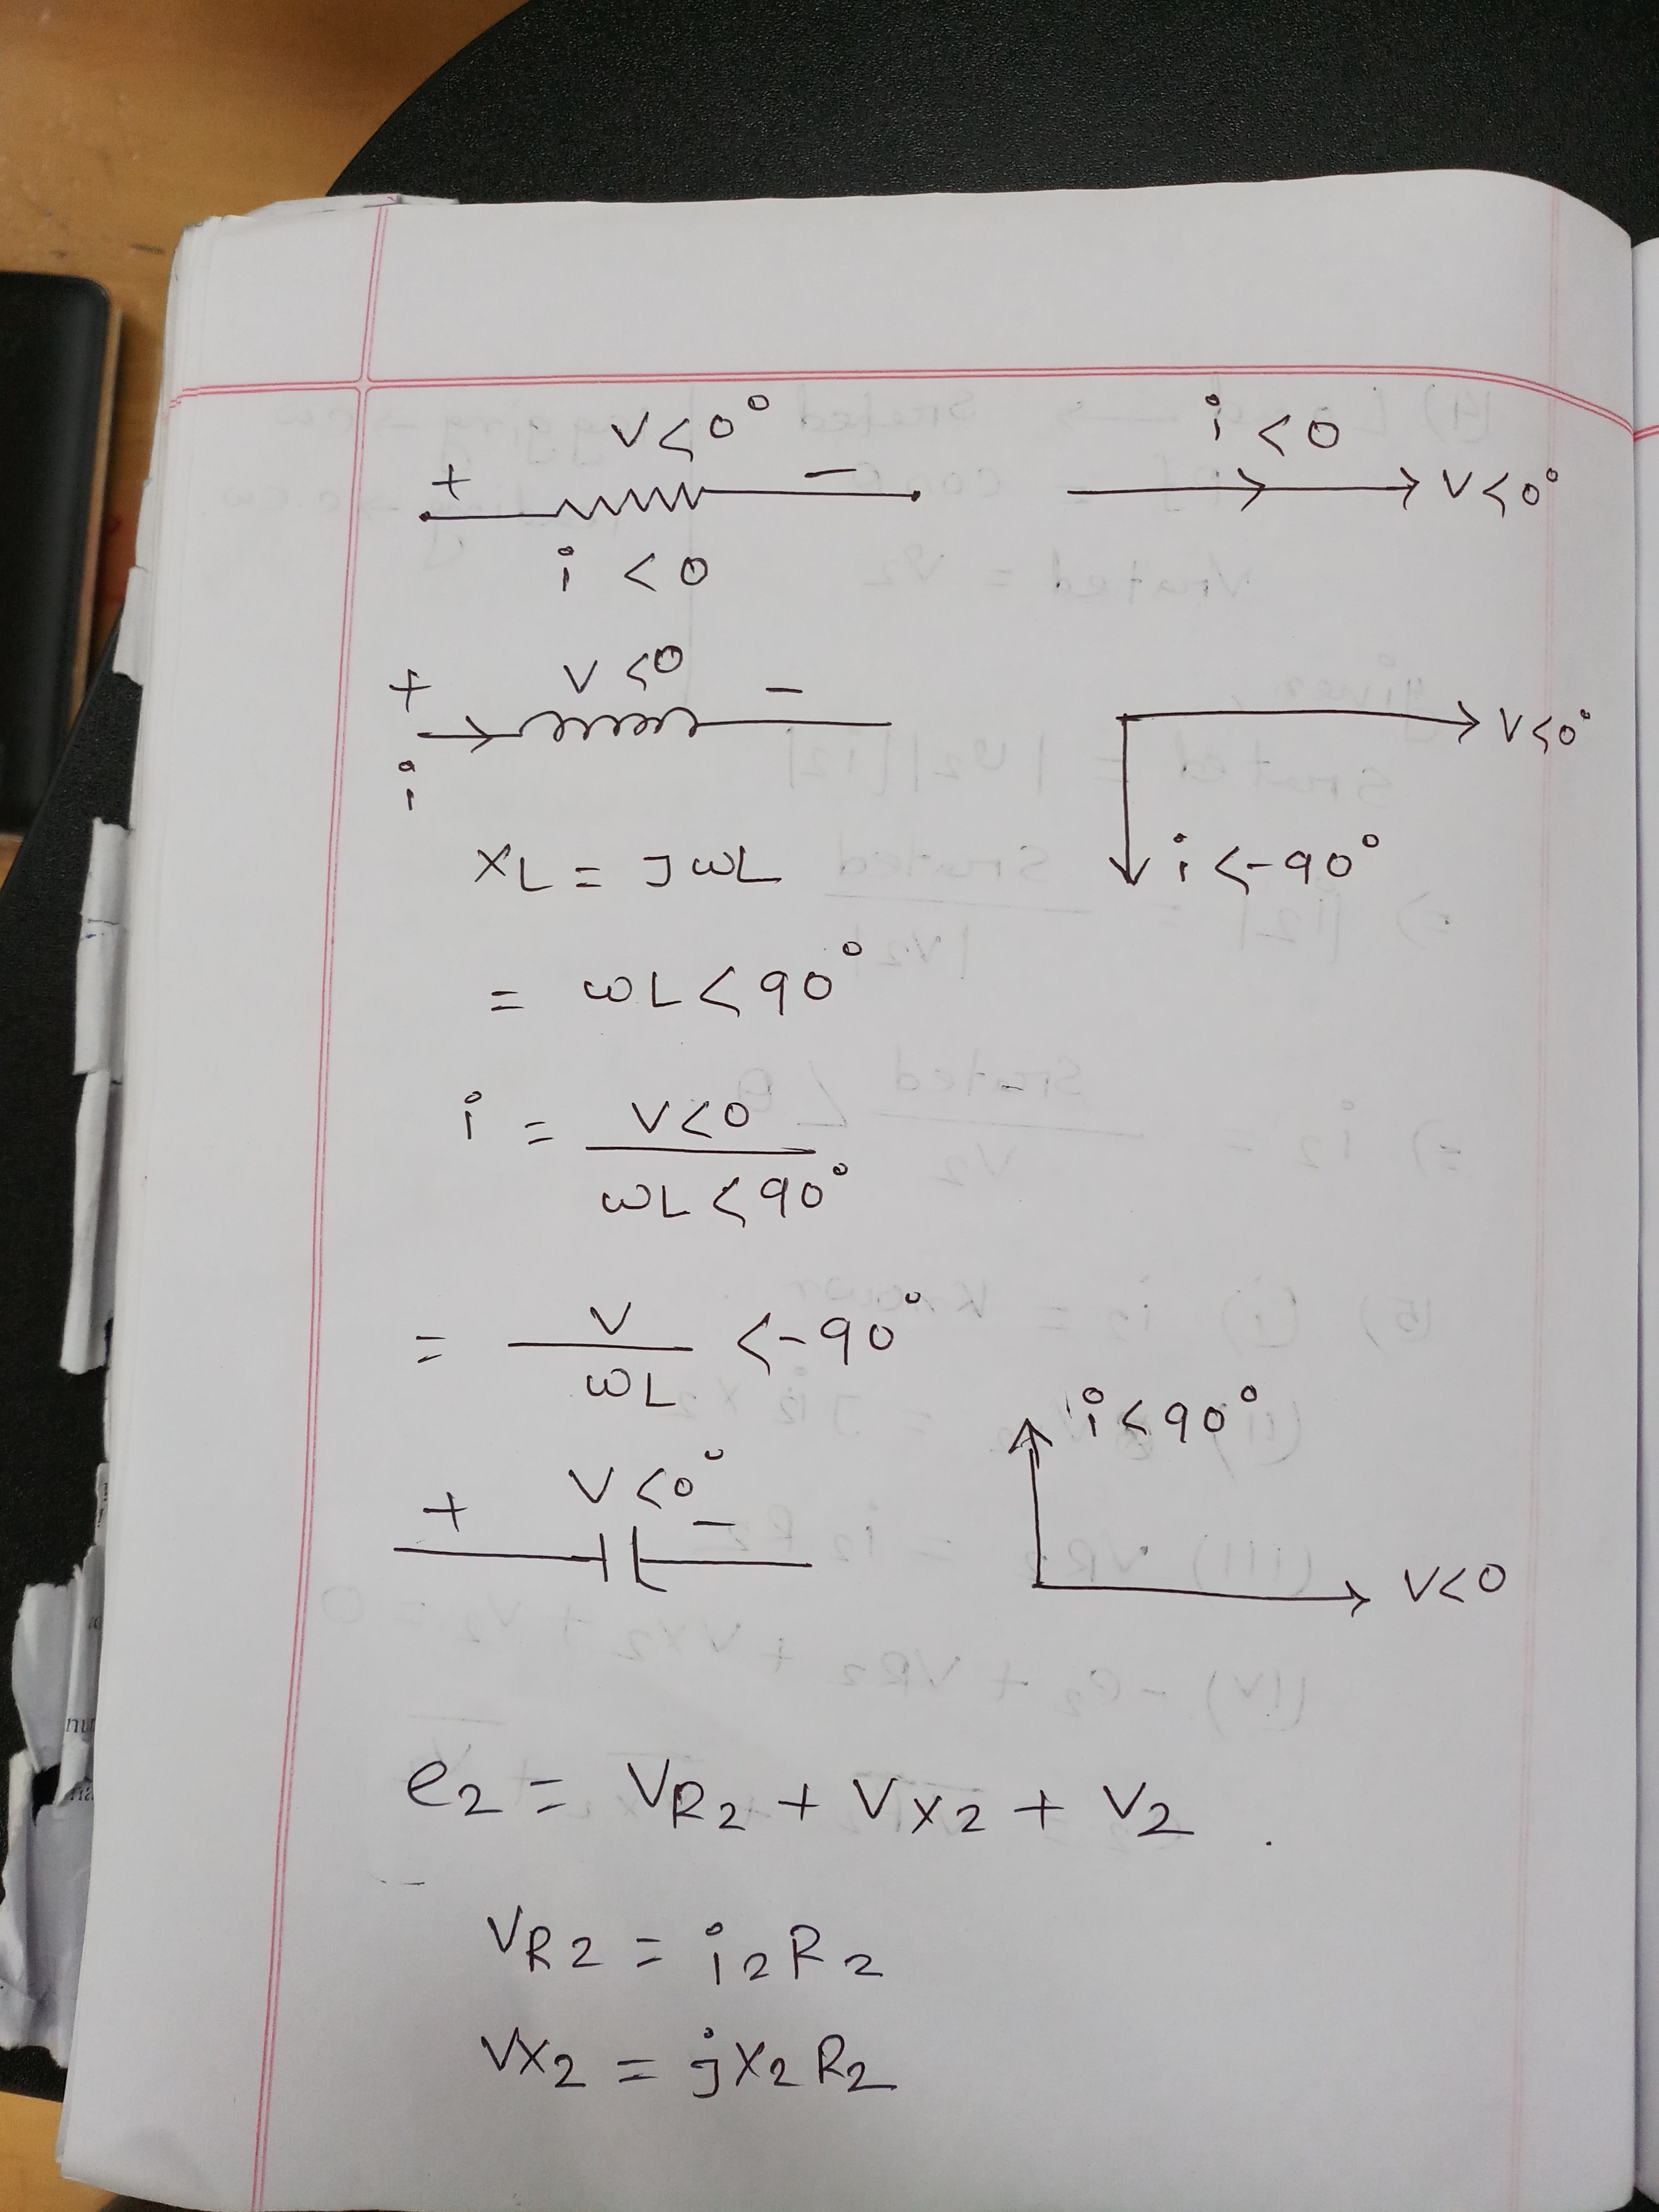 V<0°
+ −
i<0
i<0
V<0°
V<0
+ −
i
V<0°
i<-90°
XL = JωL
= ωL<90°
i = V<0 / ωL<90°
= V / ωL <-90°
i<90°
V<0°
+ −
V<0
e2 = VR2 + VX2 + V2 .
VR2 = i2R2
VX2 = jX2R2